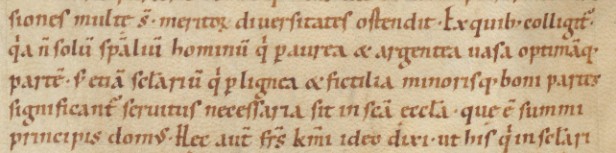 siones multe s̄· meritoꝝ diversitates ostendit· Ex quib; colligit᷑·
q̇a n̄ solū sp̄aliū hominū q̇ ꝑ aurea & argentea uasa optimāq;
partē· s; etiā sclariū q̇ ꝑ lignea & fictilia minorisq; boni partes
significant᷑ seruitus necessaria sit in sc̄a ecclā· que ē summi
principis domꝰ· Hec aut̄ frs̄ km̄i ideo dixi· ut his q̇ in sclari